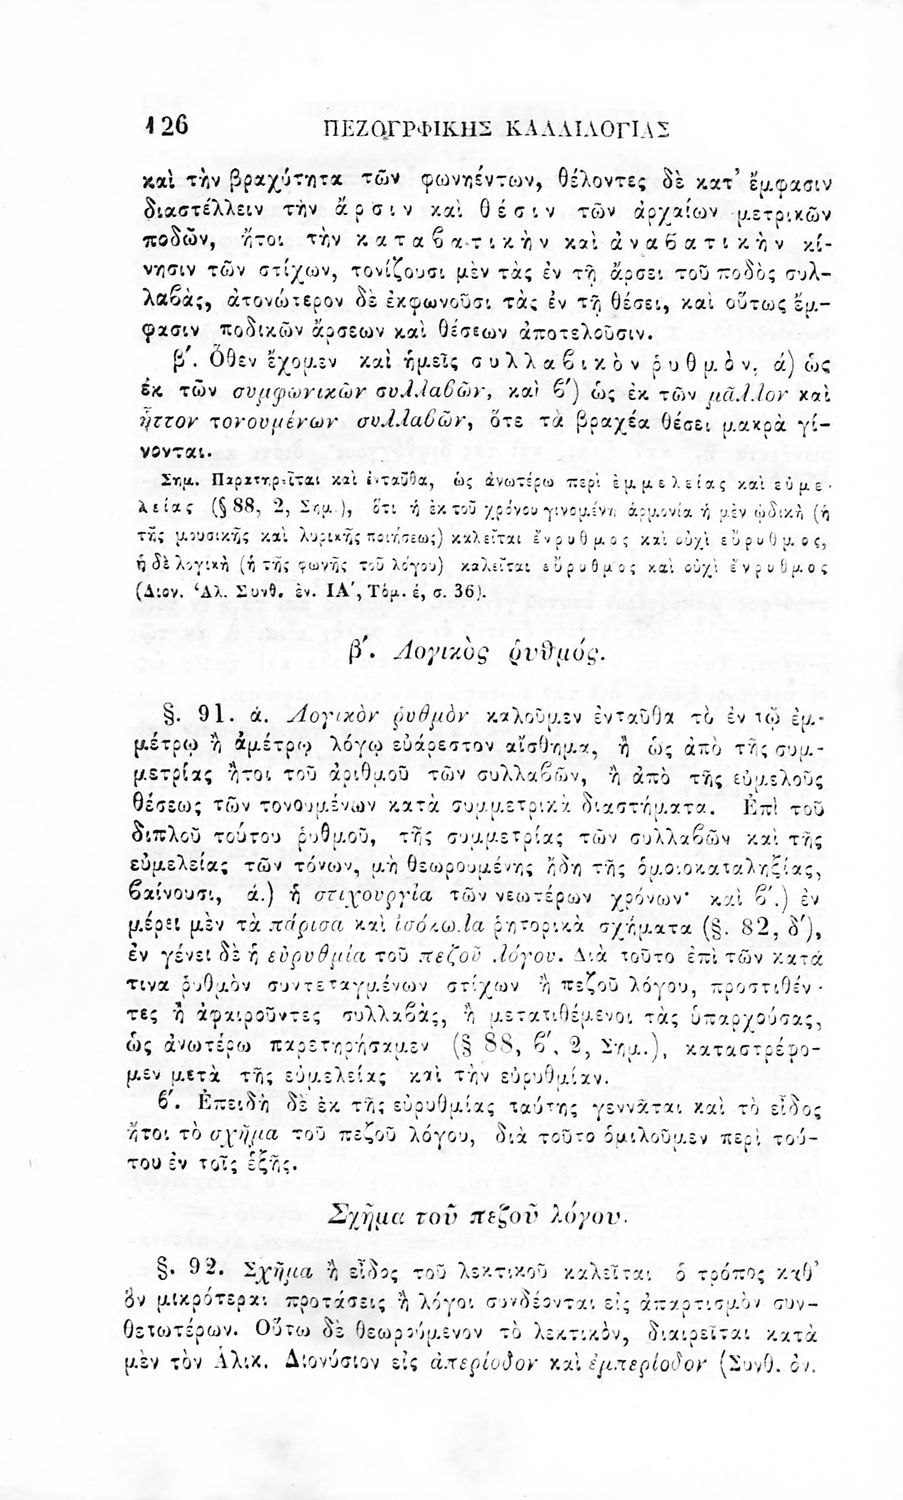 126 ΠΕΖΟΓΡΦΙΚΗΣ ΚΑΛΛΙΛΟΓΙΑΣ
καὶ τὴν βραχύτητα τῶν φωνηέντων, θέλοντες δὲ κατ’ ἔμφασιν
διαστέλλειν τὴν ἄρσιν καὶ θέσιν τῶν ἀρχαίων μετρικῶν
ποδῶν, ἤτοι τὴν καταϐατικὴν καὶ ἀναϐατικὴν κί-
νησιν τῶν στίχων, τονίζουσι μὲν τὰς ἐν τῇ ἄρσει τοῦ ποδὸς συλ-
λαϐὰς, ἀτονώτερον δὲ ἐκφωνοῦσι τὰς ἐν τῇ θέσει, καὶ οὕτως ἔμ-
φασιν ποδικῶν ἄρσεων καὶ θέσεων ἀποτελοῦσιν.
β´. Ὅθεν ἔχομεν καὶ ἡμεῖς συλλαϐικὸν ῥυθμὸν, ά) ὡς
ἐκ τῶν συμφωνικῶν συλλαϐῶν, καὶ ϐ´) ὡς ἐκ τῶν μᾶλλον καὶ
ἧττον τονουμένων συλλαϐῶν, ὅτε τὰ βραχέα θέσει μακρὰ γί-
νονται.
Σημ. Παρατηρεῖται καὶ ἐνταῦθα, ὡς ἀνωτέρω περὶ ἐμμελείας καὶ εὐμε-
λείας (§ 88, 2, Σημ.), ὅτι ἡ ἐκ τοῦ χρόνου γινομένη ἁρμονία ἡ μὲν ᾠδικὴ (ἡ
τῆς μουσικῆς καὶ λυρικῆς ποιήσεως) καλεῖται ἔνρυθμος καὶ οὐχὶ εὔρυθμος,
ἡ δὲ λογικὴ (ἡ τῆς φωνῆς τοῦ λόγου) καλεῖται εὔρυθμος καὶ οὐχὶ ἔνρυθμος
(Διον. Ἁλ. Συνθ. ἐν. ΙΑ´, Τόμ. έ, σ. 36).
β´. Λογικὸς ῥυθμός.
§. 91. ά. Λογικὸν ῥυθμὸν καλοῦμεν ἐνταῦθα τὸ ἐν τῷ ἐμ-
μέτρῳ ἢ ἀμέτρῳ λόγῳ εὐάρεστον αἴσθημα, ἢ ὡς ἀπὸ τῆς συμ-
μετρίας ἤτοι τοῦ ἀριθμοῦ τῶν συλλαϐῶν, ἢ ἀπὸ τῆς εὐμελοῦς
θέσεως τῶν τονουμένων κατὰ συμμετρικὰ διαστήματα. Ἐπὶ τοῦ
διπλοῦ τούτου ῥυθμοῦ, τῆς συμμετρίας τῶν συλλαϐῶν καὶ τῆς
εὐμελείας τῶν τόνων, μὴ θεωρουμένης ἤδη τῆς ὁμοιοκαταληξίας,
ϐαίνουσι, ά.) ἡ στιχουργία τῶν νεωτέρων χρόνων· καὶ ϐ´.) ἐν
μέρει μὲν τὰ πάρισα καὶ ἰσόκωλα ῥητορικὰ σχήματα (§. 82, δ´),
ἐν γένει δὲ ἡ εὐρυθμία τοῦ πεζοῦ λόγου. Διὰ τοῦτο ἐπὶ τῶν κατά
τινα ῥυθμὸν συντεταγμένων στίχων ἢ πεζοῦ λόγου, προστιθέν-
τες ἢ ἀφαιροῦντες συλλαϐὰς, ἢ μετατιθέμενοι τὰς ὑπαρχούσας,
ὡς ἀνωτέρω παρετηρήσαμεν (§ 88, ϐ´, 2, Σημ.), καταστρέφο-
μεν μετὰ τῆς εὐμελείας καὶ τὴν εὐρυθμίαν.
ϐ´. Ἐπειδὴ δὲ ἐκ τῆς εὐρυθμίας ταύτης γεννᾶται καὶ τὸ εἶδος
ἤτοι τὸ σχῆμα τοῦ πεζοῦ λόγου, διὰ τοῦτο ὁμιλοῦμεν περὶ τού-
του ἐν τοῖς ἑξῆς.
Σχῆμα τοῦ πεζοῦ λόγου.
§. 92. Σχῆμα ἢ εἶδος τοῦ λεκτικοῦ καλεῖται ὁ τρόπος καθ’
ὃν μικρότεραι προτάσεις ἢ λόγοι συνδέονται εἰς ἀπαρτισμὸν συν-
θετωτέρων. Οὕτω δὲ θεωρούμενον τὸ λεκτικὸν, διαιρεῖται κατὰ
μὲν τὸν Ἁλικ. Διονύσιον εἰς ἀπερίοδον καὶ ἐμπερίοδον (Συνθ. ὀν.